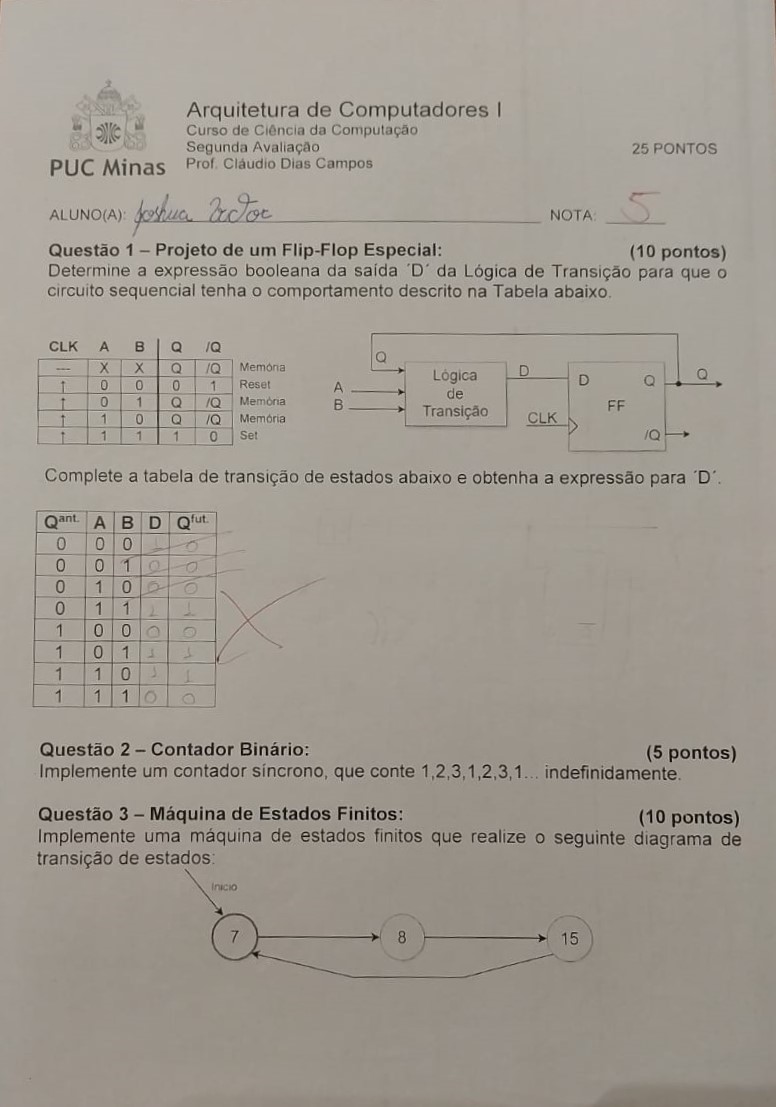 Arquitetura de Computadores I
Curso de Ciência da Computação
Segunda Avaliação
25 PONTOS
PUC Minas Prof. Cláudio Dias Campos
ALUNO(A): Joshua Victor NOTA: 5
Questão 1 – Projeto de um Flip-Flop Especial: (10 pontos)
Determine a expressão booleana da saída ´D´ da Lógica de Transição para que o
circuito sequencial tenha o comportamento descrito na Tabela abaixo.
CLK A B Q /Q
--- X X Q /Q Memória
↑ 0 0 0 1 Reset
↑ 0 1 Q /Q Memória
↑ 1 0 Q /Q Memória
↑ 1 1 1 0 Set
Q
A
B
Lógica
de
Transição
D
CLK
D Q
FF
/Q
Q
Complete a tabela de transição de estados abaixo e obtenha a expressão para ´D´.
Qant. A B D Qfut.
0 0 0 1 0
0 0 1 0 0
0 1 0 0 0
0 1 1 1 1
1 0 0 0 0
1 0 1 1 1
1 1 0 1 1
1 1 1 0 0
Questão 2 – Contador Binário: (5 pontos)
Implemente um contador síncrono, que conte 1,2,3,1,2,3,1... indefinidamente.
Questão 3 – Máquina de Estados Finitos: (10 pontos)
Implemente uma máquina de estados finitos que realize o seguinte diagrama de
transição de estados:
Inicio
7 8 15